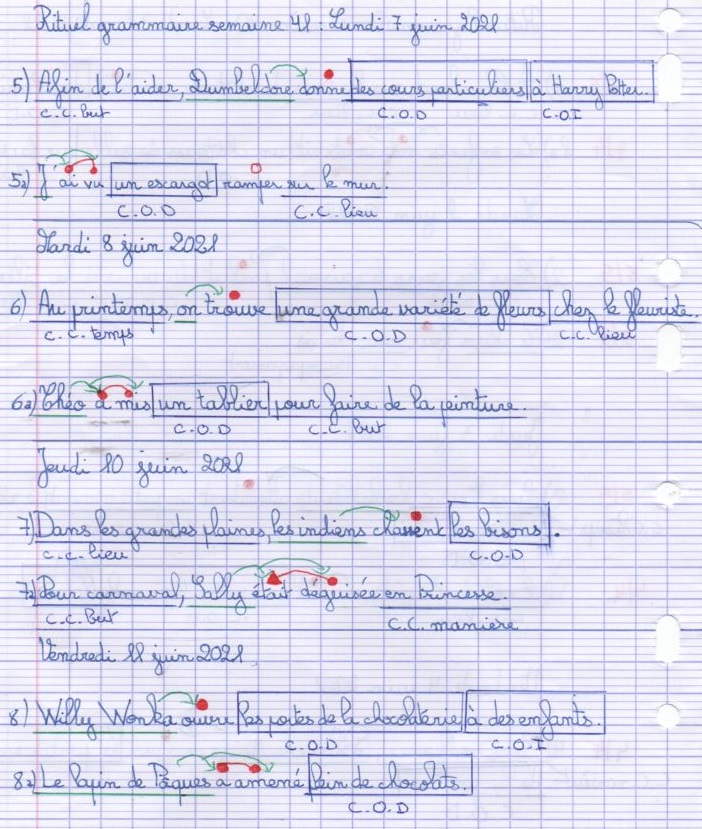 Rituel grammaire semaine 41 : Lundi 7 juin 2021
5) Afin de l'aider, Dumbeldore donne des cours particuliers à Harry Potter.
C.C. but C.O.D C.O.I
5a) J'ai vu un escargot ramper sur le mur.
C.O.D C.C. lieu
Mardi 8 juin 2021
6) Au printemps, on trouve une grande variété de fleurs chez le fleuriste.
C.C. temps C.O.D C.C. lieu
6a) Théo a mis un tablier pour faire de la peinture.
C.O.D C.C. but
Jeudi 10 juin 2021
7) Dans les grandes plaines, les indiens chassent les bisons.
C.C. lieu C.O.D
7a) Pour carnaval, Sally était déguisée en Princesse.
C.C. But C.C. manière
Vendredi 11 juin 2021
8) Willy Wonka ouvre les portes de la chocolaterie à des enfants.
C.O.D C.O.I
8a) Le lapin de Pâques a amené plein de chocolats.
C.O.D